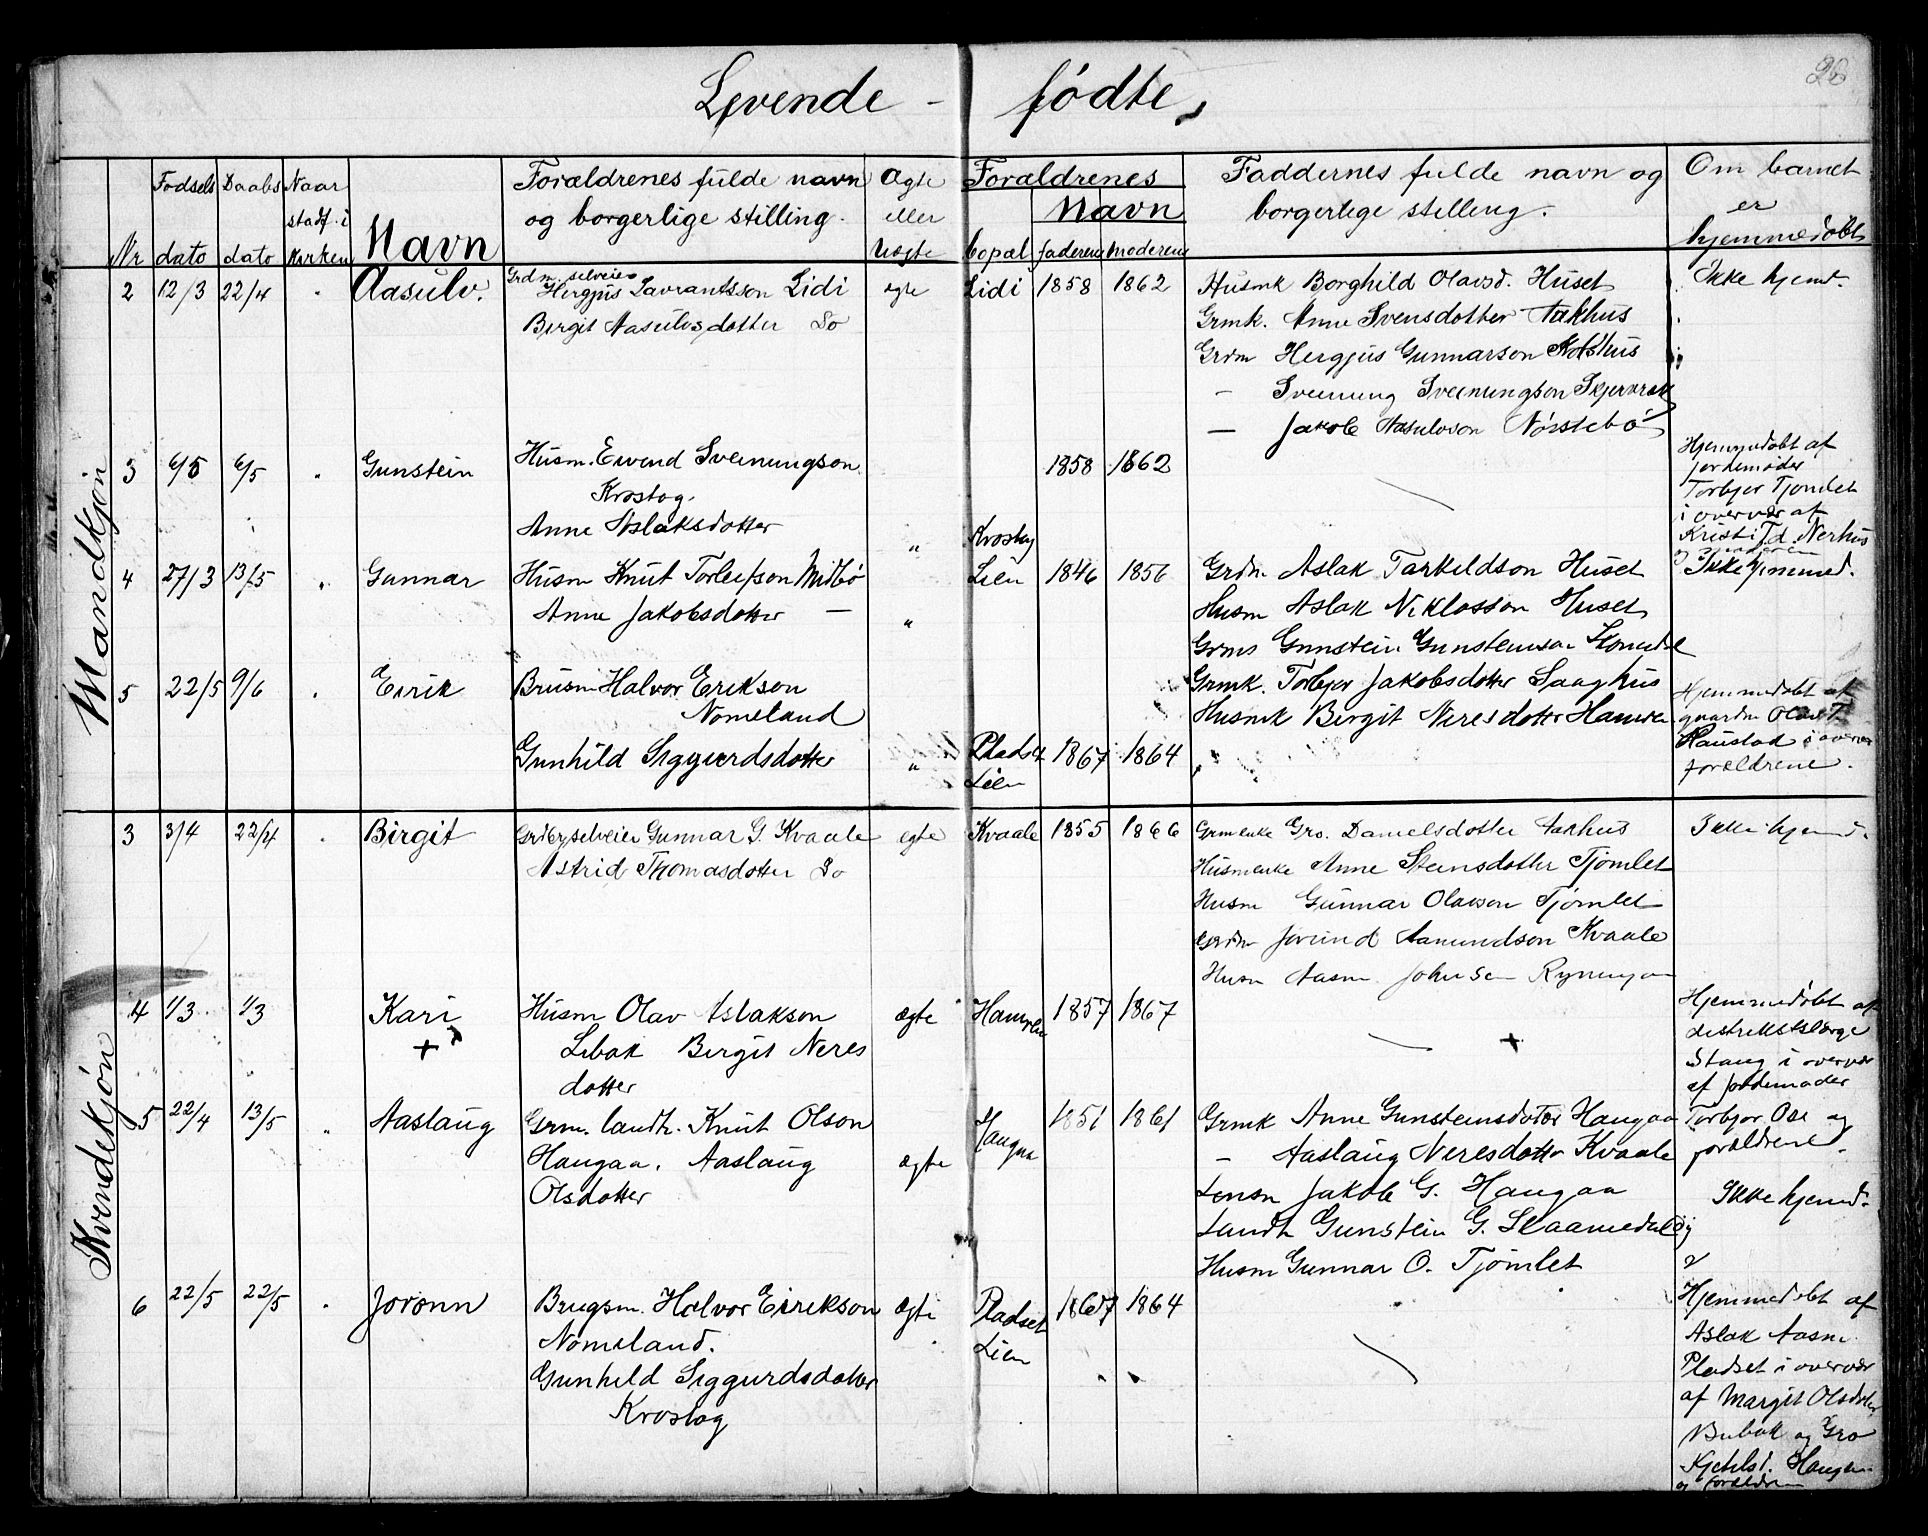 26
Levende - fødte,
Nr
Fødsels dato
Daabs dato
Naar stadf. i Kirken
Navn
Forældrenes fulde navn og borgerlige stilling.
Ægte eller Uægte
Forældrenes Navn
bopæl faderens moderens
Faddernes fulde navn og borgerlige stilling.
Om barnet er hjemmedøbt
Mandkjøn
2 12/3 22/4 " Aasulv.
Grdm. selveier
Hergjus Tavrantsson Lidi
Birgit Aasulvsdotter Do
ægte Lidi 1858 1862
Husmk Borghild Olavsd. Huset
Grmk. Anne Svensdotter Aakhus
Grdm Hergjus Gunnarson
— Sveinung Sveinungson
— Jakob Aasulvson Nørstebø
Ikke hjemd.
3 6/5 6/5 " Gunstein
Husm. Eivend Sveinungson
Krostøg.
Anne Aslaksdotter
" 1858 1862
—
Hjemmedøbt af
jordemoder
Torbjør Tjomlet
i overvær af
Kristi T.d. Nerhus
4 27/3 13/5 " Gunnar
Husm Knut Torleifson Midbø
Anne Jakobsdotter —
" Lien 1846 1856
Grdm. Aslak Tarkildson Huset
Husm Aslak Niklosson Huset
Grms Gunstein Gunsteinson
Grmk. Torbjør Jakobsdotter Saaghus
Husmk Birgit Neresdotter
Ikke hjemmed.
5 22/5 9/6 " Eirik
Brusm Halvor Erikson
Nomeland
Gunhild Siggurdsdotter
" Pladset
Lien 1867 1864
Hjemmedøbt af
gaardm Olav T.
i overvær
forældrene.
Kvindekjøn
3 3/4 22/4 " Birgit
Grdbr. selveier Gunnar G. Kvaale
Astrid Thomasdotter Do
ægte Kvaale 1855 1866
Grmenke Gro. Danielsdotter Aakhus
Husmenke Anne Steinsdotter Tjomlet
Husm Gunnar Olavson Tjomlet
Grdm Jorund Aamundson Kvaale
Husm Aasm. Johnsen
Ikke hjemd.
4 1/3 1/3 Kari
+
Husm Olav Aslakson
Libak Birgit Neres
dotter
ægte 1857 1867
— +
Hjemmedøbt af
distriktslæge
Stang i overvær
af jordemoder
Torbjør Ose og
forældrene.
5 22/4 13/5 " Aaslaug
Grm. landh. Knut Olson
Haugaa. Aaslaug
Olsdotter
ægte Haugaa 1851 1861
Grmk Anne Gunsteinsdotter Haugaa
— Aaslaug Neresdotter Kvaale
Jakob G. Haugaa
Landh Gunstein G. Skaamedal
Husm Gunnar O. Tjømlet
Ikke hjemd.
6 22/5 22/5 " Joronn
Brugsm. Halvor Eirikson
Nomeland.
Gunhild Siggurdsdotter
Krostøg
ægte Pladset
Lien 1867 1864
Hjemmedøbt af
Aslak Aasm.
Pladset i overvær
af Margit Olsdotter
Bubak og Gro
Kjetilsd. Haugen
og forældrene